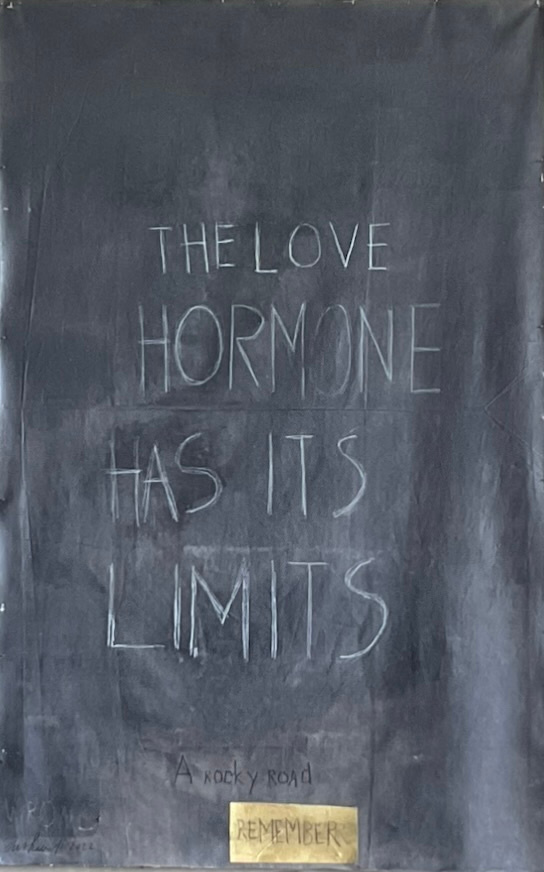 THE LOVE
HORMONE
HAS ITS
LIMITS
A ROCKY ROAD
REMEMBER